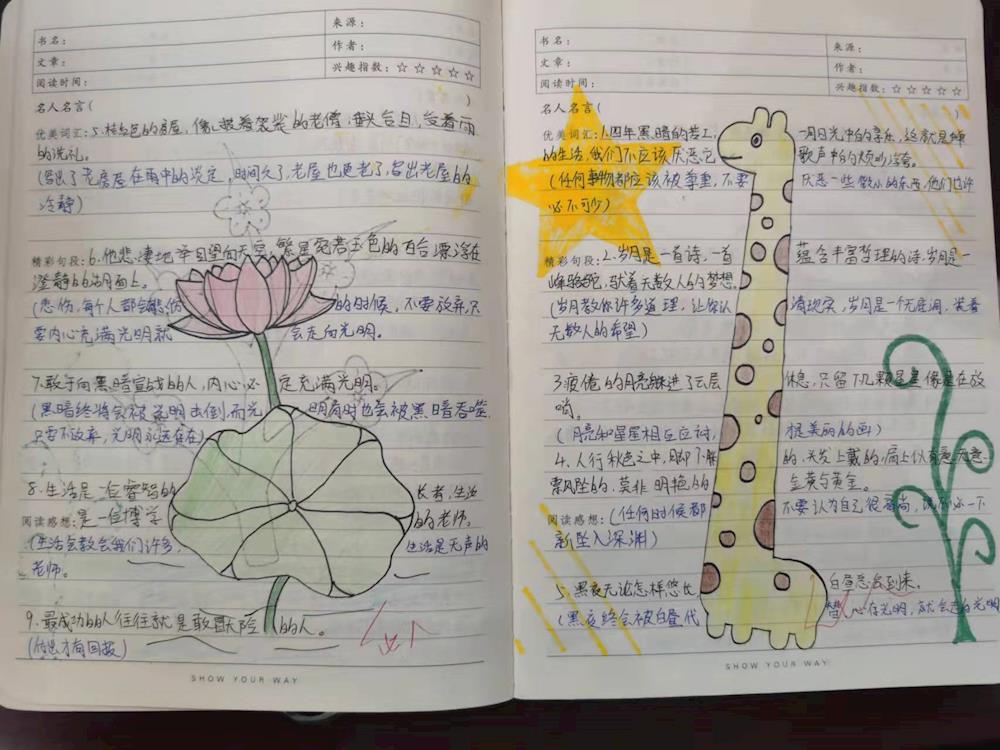 书名：
来源：
文章：
作者：
阅读时间：
兴趣指数：☆☆☆☆☆
名人名言（ ）
优美词汇：5.棕红色的房屋，像披着袈裟的老僧，垂头合目，受着雨
的洗礼。
(写出了老房屋在雨中的淡定，时间久了，老屋也更老了，写出老屋的
冷静)
精彩句段：6.他悲凄地举目望向天空，繁星宛若玉色的百合漂浮在
澄静的湖面上。
(悲伤，每个人都会悲伤的时候，不要放弃，只
要内心充满光明就会走向光明。
7.敢于向黑暗宣战的人，内心必定充满光明。
(黑暗终将会被光明击倒，而光明有时也会被黑暗吞噬，
只要不放弃，光明永远存在)
8.生活是一位睿智的长者，生活
阅读感想：是一位博学的老师。
(生活会教会我们许多，生活是无声的
老师。
9.最成功的人往往就是敢冒险的人。
(付出才有回报)
SHOW YOUR WAY
书名：
来源：
文章：
作者：
阅读时间：
兴趣指数：☆☆☆☆☆
名人名言（ ）
优美词汇：1.四年黑暗的苦工，一月日光中的享乐，这就是蝉
的生活，我们不应该厌恶它歌声中的烦吵
(任何事物都应该被尊重，不要厌恶一些微小的东西，他们也许
必不可少)
精彩句段：2.岁月是一首诗，一首蕴含丰富哲理的诗，岁月是一
峰骆驼，驮着无数人的梦想。
(岁月教你许多道理，让你认清现实，岁月是一个无底洞，装着
无数人的希望)
3疲倦的月亮躲进了云层休息，只留下几颗星星像是在放
哨。
(月亮和星星相互应衬，挺美丽的画)
4.人行秋色之中，脚下的，天发上戴的，肩上似有意无意
飘坠的，莫非明艳的金英与黄金。
阅读感想：(任何时候都不要认为自己很高尚，说不定一下
新坠入深渊)
5.黑夜无论怎样悠长，白昼总会到来。
(黑夜终会被白昼代替，心存光明，就会走向光明
SHOW YOUR WAY